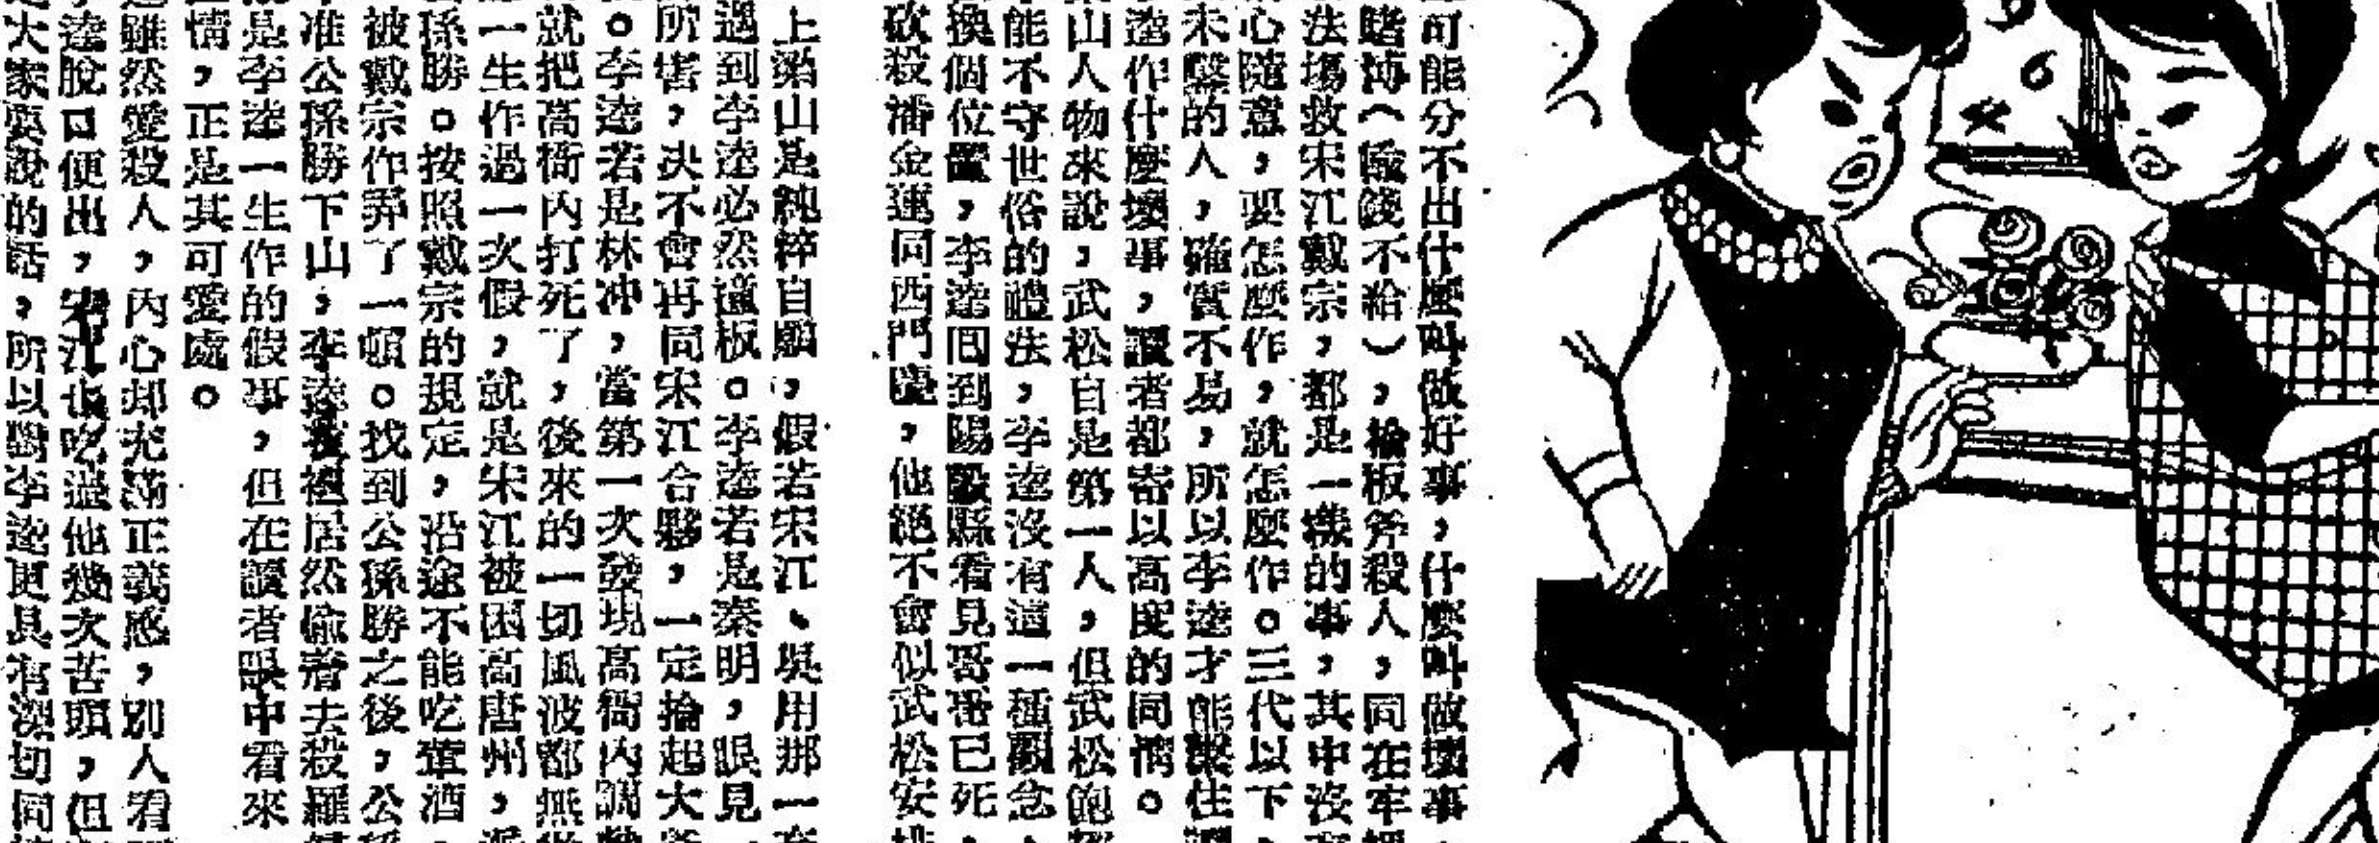 可能分不出什麼叫做好事，什麼叫做壞事，
賭博（輸錢不給），掄板斧殺人，同在牢裡
法場救宋江戴宗，都是一樣的事，其中沒有
心隨意，要怎麼作，就怎麼作。三代以下，
未鑿的人，確實不易，所以李逵才能緊住
逵作什麼壞事，讀者都寄以高度的同情。
山人物來說，武松自是第一人，但武松飽
能不守世俗的禮法，李逵沒有這一種觀念，
換個位置，李逵回到陽穀縣看見哥哥已死，
砍殺潘金蓮同西門慶，他絕不會似武松安排
上梁山是純粹自願，假若宋江、吳用那一套
遇到李逵必然違板。李逵若是秦明，眼見
所害，决不會再同宋江合夥，一定掄起大斧
。李逵若是林冲，當第一次發現高衙內調
就把高衙內打死了，後來的一切風波都無從
一生作過一次假，就是宋江被困高唐州，派
孫勝。按照戴宗的規定，沿途不能吃葷酒，
被戴宗作弄了一頓。找到公孫勝之後，公孫
准公孫勝下山，李逵夜裡居然偷着去殺羅
是李逵一生作的假事，但在讀者眼中看來
情，正是其可愛處。
雖然愛殺人，內心却充滿正義感，別人看
逵脫口便出，宋江也吃過他幾次苦頭，但
大家要說的話，所以對李逵更具有深切同